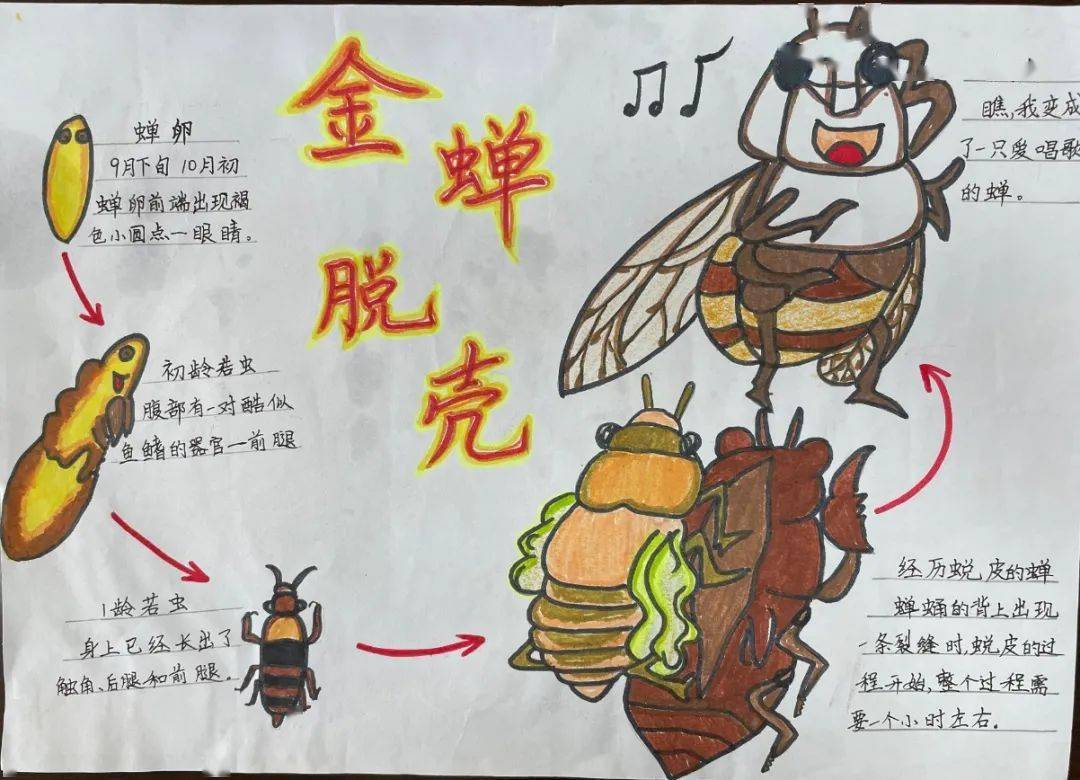 金蝉脱壳
蝉卵
9月下旬10月初
蝉卵前端出现褐
色小圆点一眼睛。
初龄若虫
腹部有一对酷似
鱼鳍的器官一前腿
1龄若虫
身上已经长出了
触角、后腿和前腿。
经历蜕皮的蝉
蝉蛹的背上出现
一条裂缝时,蜕皮的过
程开始,整个过程需
要一个小时左右。
瞧,我变成
了一只爱唱歌
的蝉。